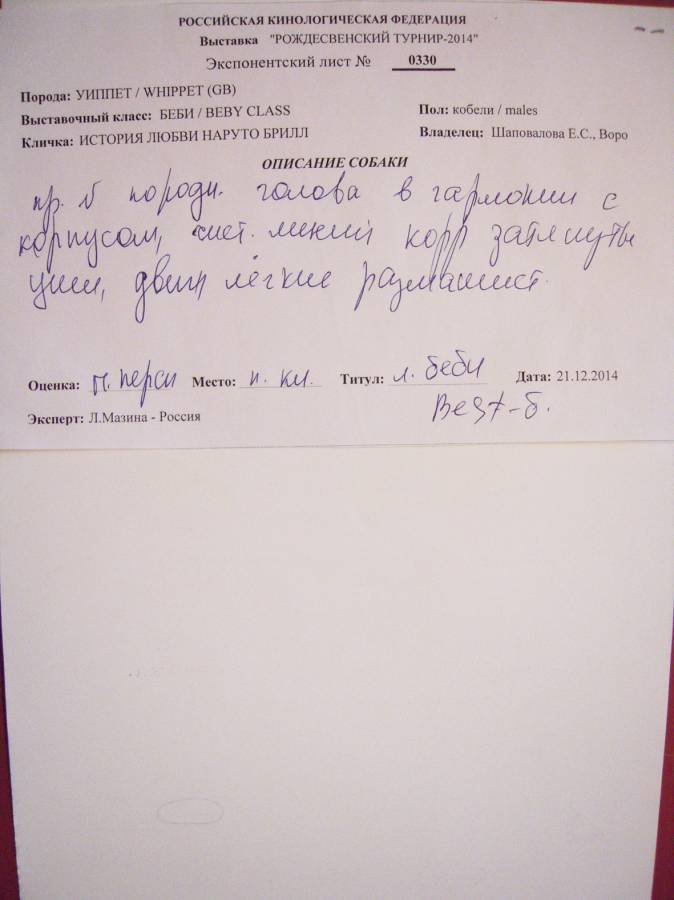 РОССИЙСКАЯ КИНОЛОГИЧЕСКАЯ ФЕДЕРАЦИЯ
Выставка "РОЖДЕСВЕНСКИЙ ТУРНИР-2014"
Экспонентский лист № 0330
Порода: УИППЕТ / WHIPPET (GB)
Выставочный класс: БЕБИ / BEBY CLASS Пол: кобели / males
Кличка: ИСТОРИЯ ЛЮБВИ НАРУТО БРИЛЛ Владелец: Шаповалова Е.С., Воро
ОПИСАНИЕ СОБАКИ
пр. б породн. голова в гармонии с
корпусом, чист. линий корр затянуты
уши, движ лёгкие размашист.
Оценка: п. персп Место: п. кл. Титул: л. беби Дата: 21.12.2014
Best-б.
Эксперт: Л.Мазина - Россия